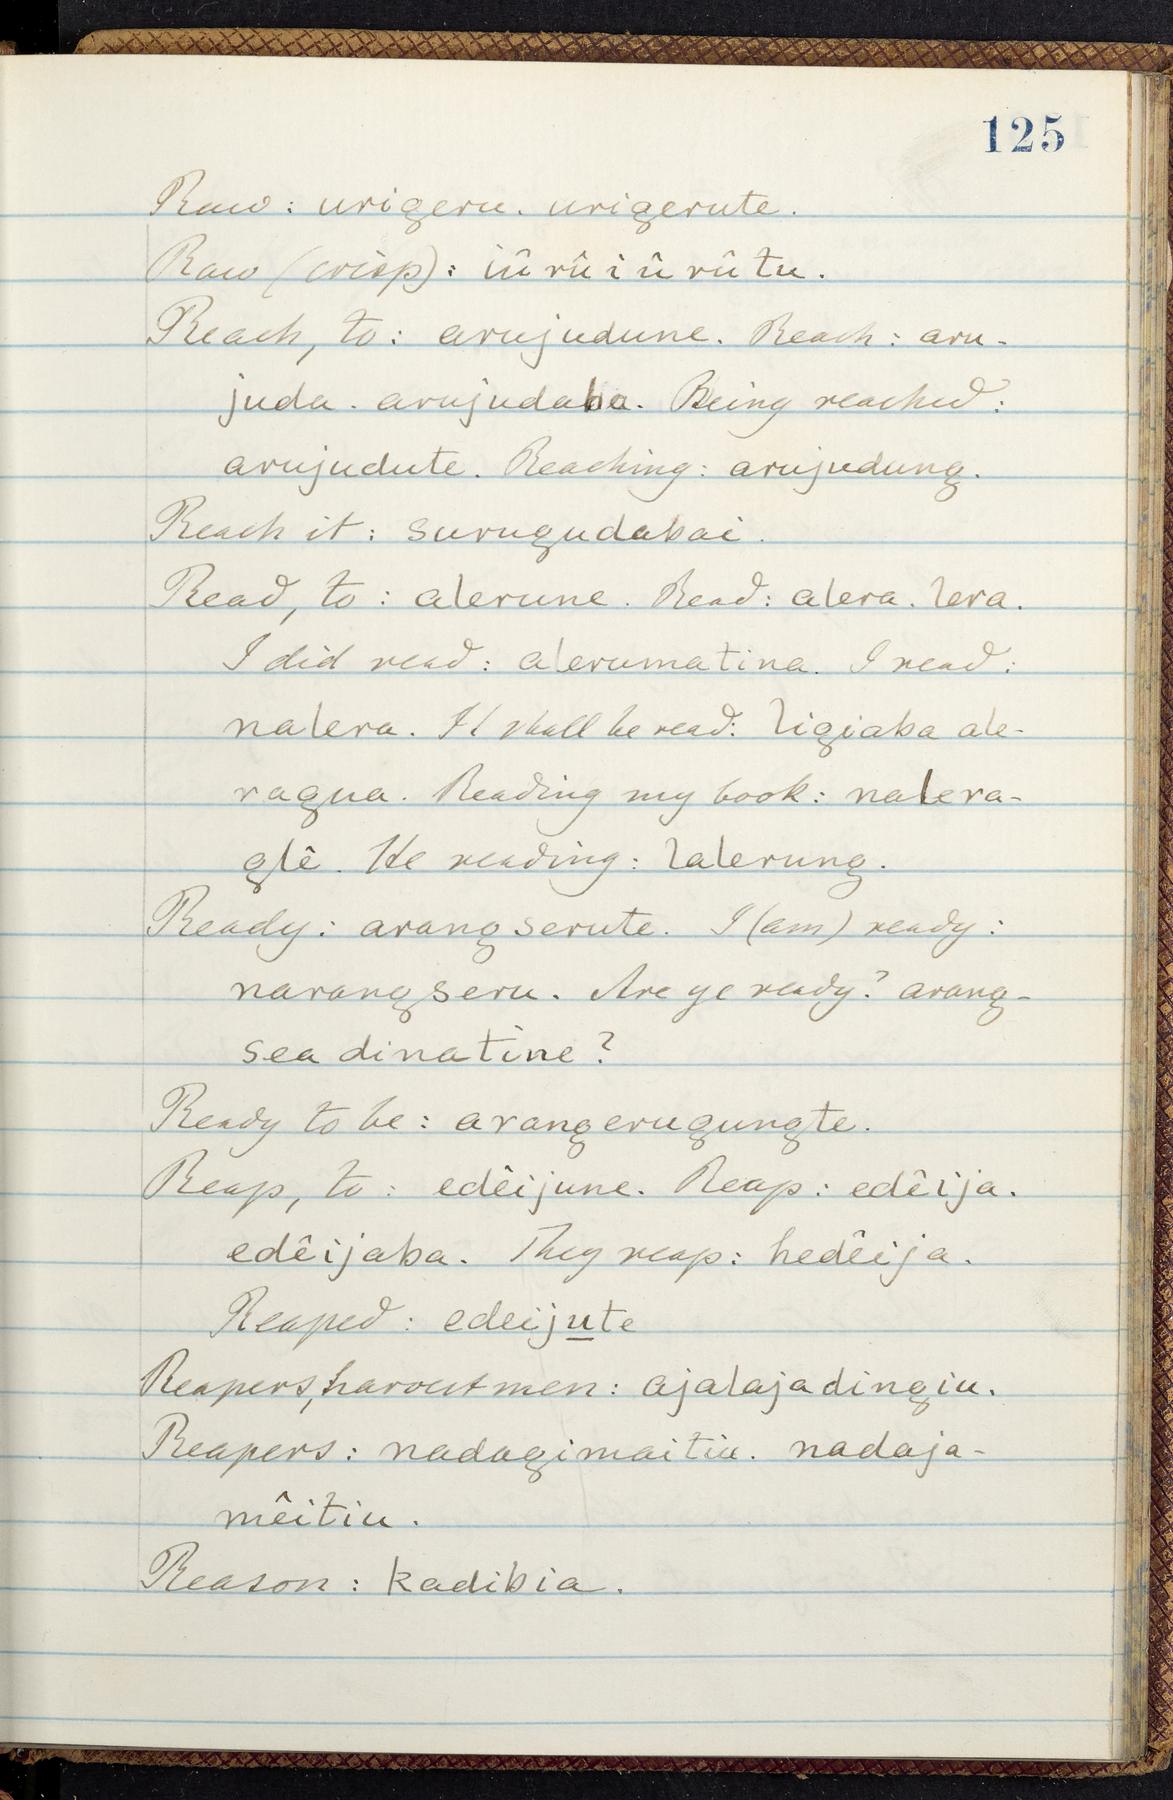 125
Raw : urigeru. urigerute.
Raw (crisp) : iûrûiûrûtu.
Reach, to : arujudune. Reach : aru-
juda. arujudaba. Being reached :
arujudute. Reaching : arujudung.
Reach it : surugudabai.
Read, to : alerune. Read : alera. lera.
I did read : alerumatina. I read :
nalera. It shall be read : ligiaba ale-
ragua. Reading my book : nalera-
glê. He reading : lalerung.
Ready : arangserute. I (am) ready :
narangseru. Are ye ready? arang-
sea dinatine?
Ready to be : arangerugungte.
Reap, to : edêijune. Reap : edêija.
edêijaba. They reap : hedêija.
Reaped : edeijute
Reapers, harvestmen : ajalajadingiu.
Reapers : nadagimaitiu. nadaja-
mêitiu.
Reason : kadibia.